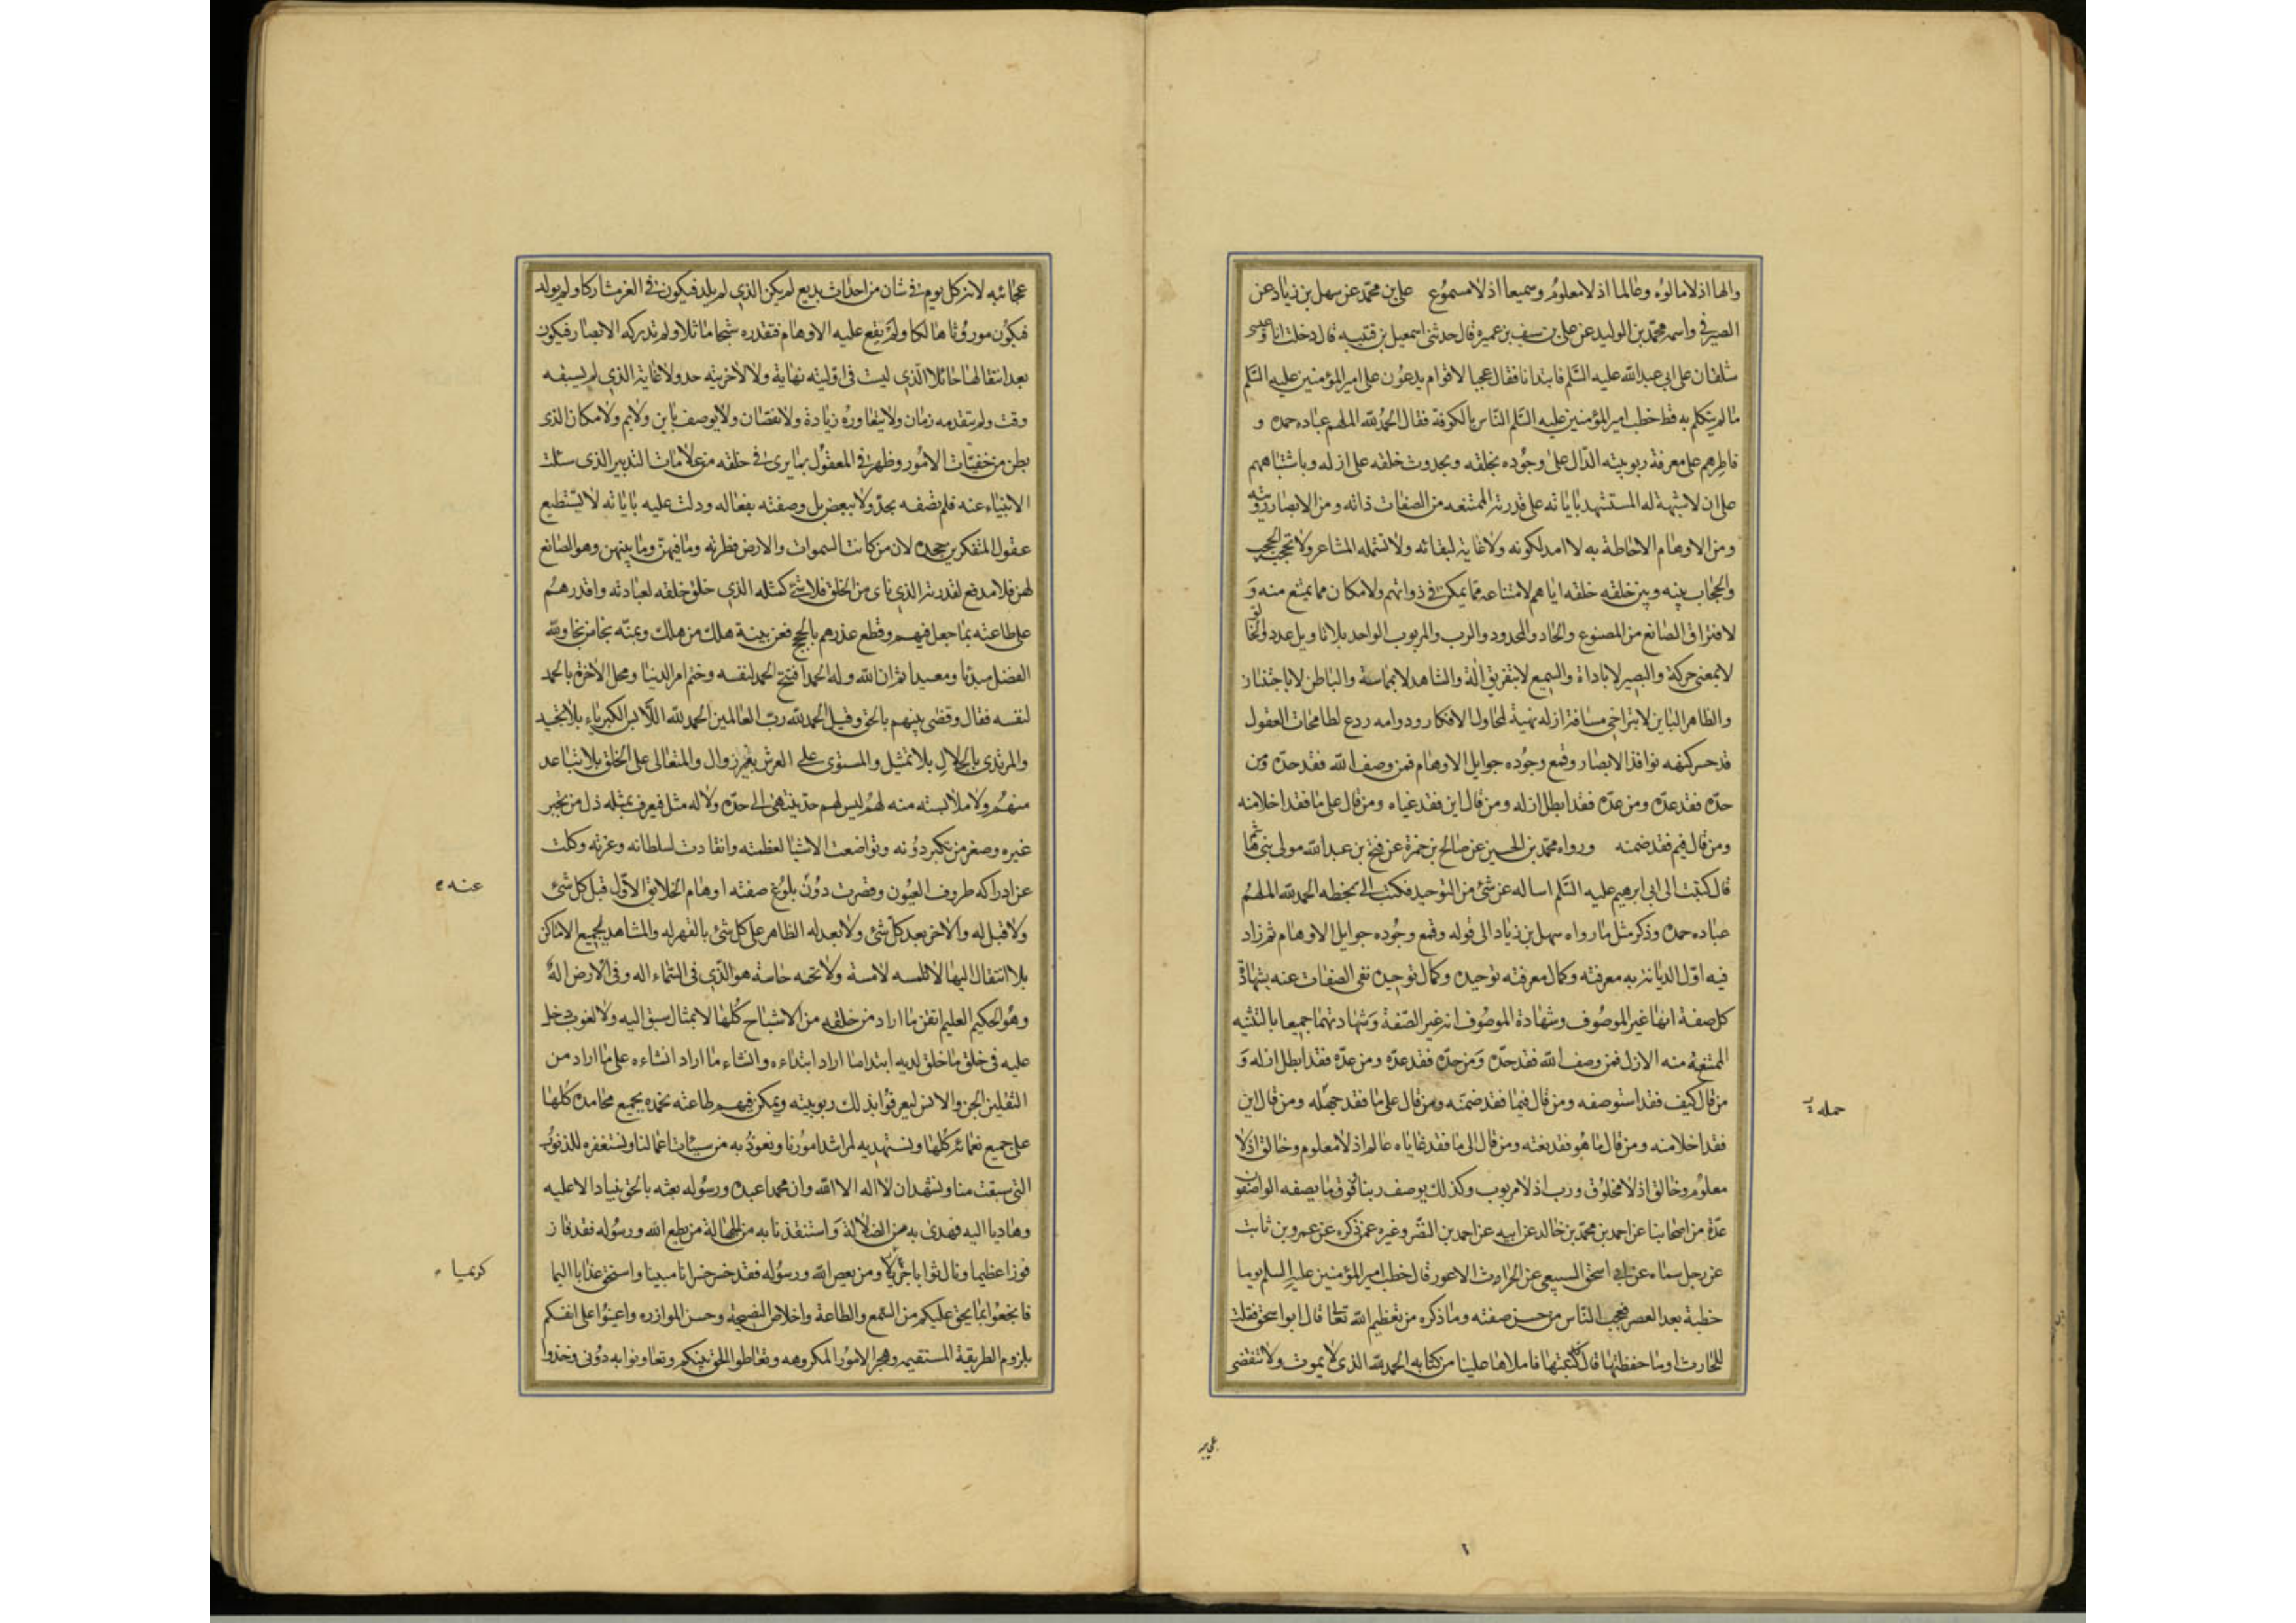 والها اذ لا مالوه وعالما اذ لا معلوم وسميعا اذ لا مسموع علي بن محمد عن سهل بن زياد عن
الصيرفي واسمه محمد بن الوليد عن علي بن سيف بن عميرة قال حدثني اسمعيل بن قتيبه قال دخلت انا وعيسى
شلقان على ابي عبدالله عليه السلم فابتدانا فقال عجبا لاقوام يدعون على امير المؤمنين عليه السلم
ما لم يتكلم به قط خطب امير المؤمنين عليه السلم الناس بالكوفة فقال الحمد لله الملهم عباده حمده و
فاطرهم على معرفة ربوبيته الدال على وجوده بخلقه وبحدوث خلقه على ازله وباشتباههم
على ان لا شبهة له المستشهد باياته على قدرته الممتنعه من الصفات ذاته ومن الابصار رؤيته
ومن الاوهام الاحاطة به لا امد لكونه ولا غاية لبقائه ولا تشمله المشاعر ولا تحجبه الحجب
والحجاب بينه وبين خلقه خلقه اياهم لامتناعه مما يمكن في ذواتهم ولامكان مما يمتنع منه و
لافتراق الصانع من المصنوع والحاد والمحدود والرب والمربوب الواحد بلا تاويل عدد والخالق
لا بمعنى حركة والبصير لا باداة والسميع لا بتفريق الة والشاهد لا بمماسة والباطن لا باجتنان
والظاهر الباين لا بتراخي مسافة ازله نهية لمحاول الافكار ودوامه ردع لطامحات العقول
قد حسر كنهه نوافذ الابصار وقمع وجوده جوايل الاوهام فمن وصف الله فقد حده ومن
حده فقد عده ومن عده فقد ابطل ازله ومن قال اين فقد غياه ومن قال على ما فقد اخلامنه
ومن قال فيم فقد ضمنه ورواه محمد بن الحسين عن صالح بن حمزة عن فتح بن عبدالله مولى بني هاشم
قال كتبت الى ابي ابرهيم عليه السلم اساله عن شئ من التوحيد فكتب الي بخطه الحمد لله الملهم
عباده حمده وذكر مثل ما رواه سهل بن زياد الى قوله وقمع وجوده جوايل الاوهام ثم زاد
فيه اول الديانة به معرفته وكمال معرفته توحيده وكمال توحيده نفي الصفات عنه بشهادة
كل صفة انها غير الموصوف وشهادة الموصوف انه غير الصفة وشهادتهما جميعا بالتثنيه
الممتنعة منه الازل فمن وصف الله فقد حده ومن حده فقد عده ومن عده فقد ابطل ازله و
من قال كيف فقد استوصفه ومن قال فيما فقد ضمنه ومن قال على ما فقد جهله ومن قال اين
حمله
فقد اخلامنه ومن قال ما هو فقد نعته ومن قال الى ما فقد غاياه عالم اذ لا معلوم وخالق اذ لا
معلوم وخالق اذ لا مخلوق ورب اذ لا مربوب وكذلك يوصف ربنا فوق ما يصفه الواصفون
عدة من اصحابنا عن احمد بن محمد بن خالد عن ابيه عن احمد بن النضر وغيره عمن ذكره عن عمرو بن ثابت
عن رجل سماه عن ابي اسحق السبيعي عن الحرارث الاعور قال خطب امير المؤمنين عليه السلم يوما
خطبة بعد العصر فعجب الناس من حسن صفته وما ذكره من تعظيم الله تعالى قال ابو اسحق فقلت
للحارث اوما حفظتها قال كتبتها فاملاها علينا من كتابه الحمد لله الذي لا يموت ولا تنقضي
عجائبه لانه كل يوم في شان من احداث بديع لم يكن الذي لم يلد فيكون في العز مشاركا ولم يولد
فيكون موروثا هالكا ولم يقع عليه الاوهام فتقدره شبحا ماثلا ولم تدركه الابصار فيكون
بعد انتقالها حائلا الذي ليست في اوليته نهاية ولا لاخريته حد ولا غاية الذي لم يسبقه
وقت ولم يتقدمه زمان ولا يتعاوره زيادة ولا نقصان ولا يوصف باين ولا بم ولا مكان الذي
بطن من خفيات الامور وظهر في العقول بما يرى في خلقه من علامات التدبير الذي سئلت
الانبياء عنه فلم تصفه بحد ولا ببعض بل وصفته بفعاله ودلت عليه باياته لا يستطيع
عقول المتفكرين جحده لان من كانت السموات والارض فطرته وما فيهن وما بينهن وهو الصانع
لهن فلا مدفع لقدرته الذي ناى من الخلق فلا شئ كمثله الذي خلق خلقه لعبادته واقدرهم
على طاعته بما جعل فيهم وقطع عذرهم بالحجج فعن بينة هلك من هلك وبمنه نجا من نجا ولله
الفضل مبدئا ومعيدا ثم ان الله وله الحمد افتتح الحمد لنفسه وختم امر الدنيا ومحل الاخرة بالحمد
لنفسه فقال وقضى بينهم بالحق وقيل الحمد لله رب العالمين الحمد لله اللابس الكبرياء بلا تجسيد
والمرتدي بالجلال بلا تمثيل والمستوي على العرش بغير زوال والمتعالى على الخلق بلا تباعد
منهم ولا ملابسته منه لهم ليس لهم حد ينتهى الى حده ولا له مثل فيعرف بمثله ذل من تجبر
غيره وصغر من تكبر دونه وتواضعت الاشيا لعظمته وانقادت لسلطانه وعزته وكلت
عن ادراكه طروف العيون وقصرت دون بلوغ صفته اوهام الخلايق الاول قبل كل شئ
عنده
ولا قبل له والاخر بعد كل شئ ولا بعد له الظاهر على كل شئ بالقهر له والمشاهد لجميع الاماكن
بلا انتقال اليها لا تلمسه لامسة ولا تحسه حاسة هو الذي في السماء اله وفي الارض اله
وهو الحكيم العليم اتقن ما اراد من خلقه من الاشباح كلها لا بمثال سبق اليه ولا لغوب دخل
عليه في خلق ما خلق لديه ابتدا ما اراد ابتداءه وانشاء ما اراد انشاءه على ما اراد من
الثقلين الجن والانس ليعرفوا بذلك ربوبيته ويمكن فيهم طاعته نحمده بجميع محامده كلها
على جميع نعمائه كلها ونستهديه لمراشد امورنا ونعوذ به من سيئات اعمالنا ونستغفره للذنوب
التي سبقت منا ونشهد ان لا اله الا الله وان محمدا عبده ورسوله بعثه بالحق نبيا دالا عليه
وهاديا اليه فهدى به من الضلالة واستنقذنا به من الجهالة من يطع الله ورسوله فقد فاز
فوزا عظيما ونال ثوابا جزيلا ومن يعص الله ورسوله فقد خسر خسرانا مبينا واستحق عذابا اليما
كريما
فابخعوا بما يحق عليكم من السمع والطاعة واخلاص النصيحة وحسن الموازره واعينوا على انفسكم
بلزوم الطريقة المستقيمه وهجر الامور المكروهه وتعاطوا الحق بينكم وتعاونوا به دوني وخذوا